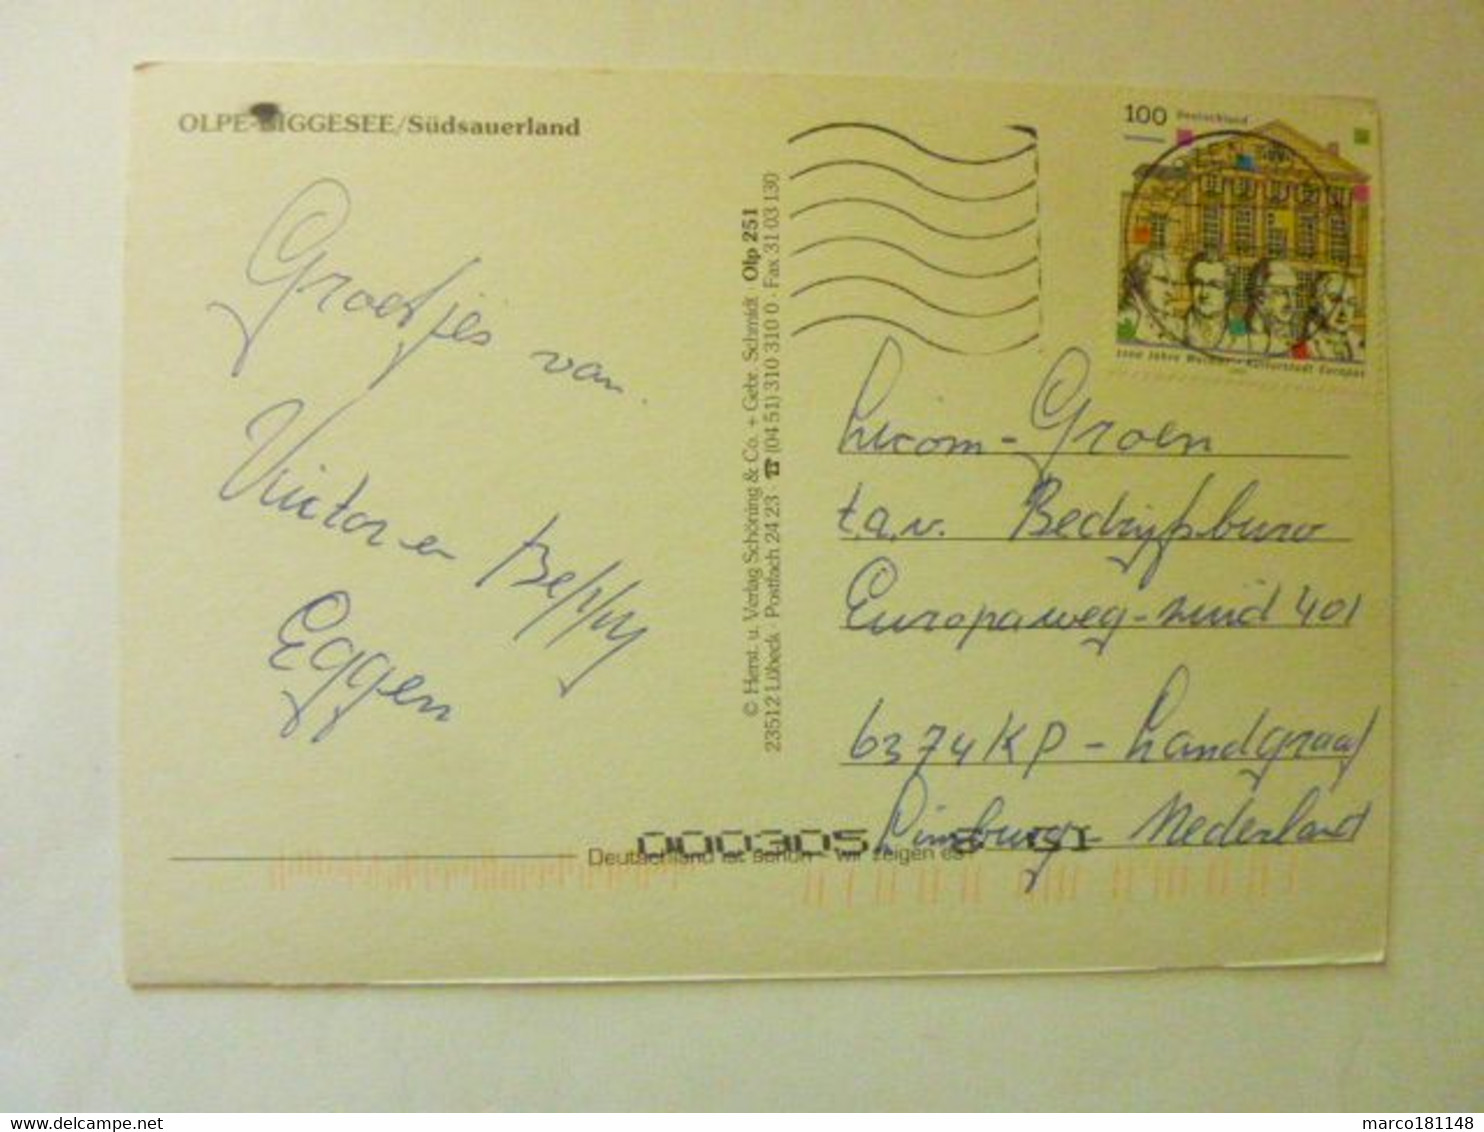 OLPE-BIGGESEE/Südsauerland
Groetjes van
Victor en Beppy
Eggen
© Herst. u. Verlag Schöning & Co. + Gebr. Schmidt · Olp 251
23512 Lübeck · Postfach 24 23 · ☎ (04 51) 310 310 0 · Fax 31 03 130
100 Deutschland
1100 Jahre Weimar – Kulturstadt Europas
Licom-Groen
t.a.v. Bedrijfsburo
Europaweg-zuid 401
6374 KP - Landgraaf
Limburg - Nederland
000305
Deutschland ist schön – wir zeigen es!
marco181148